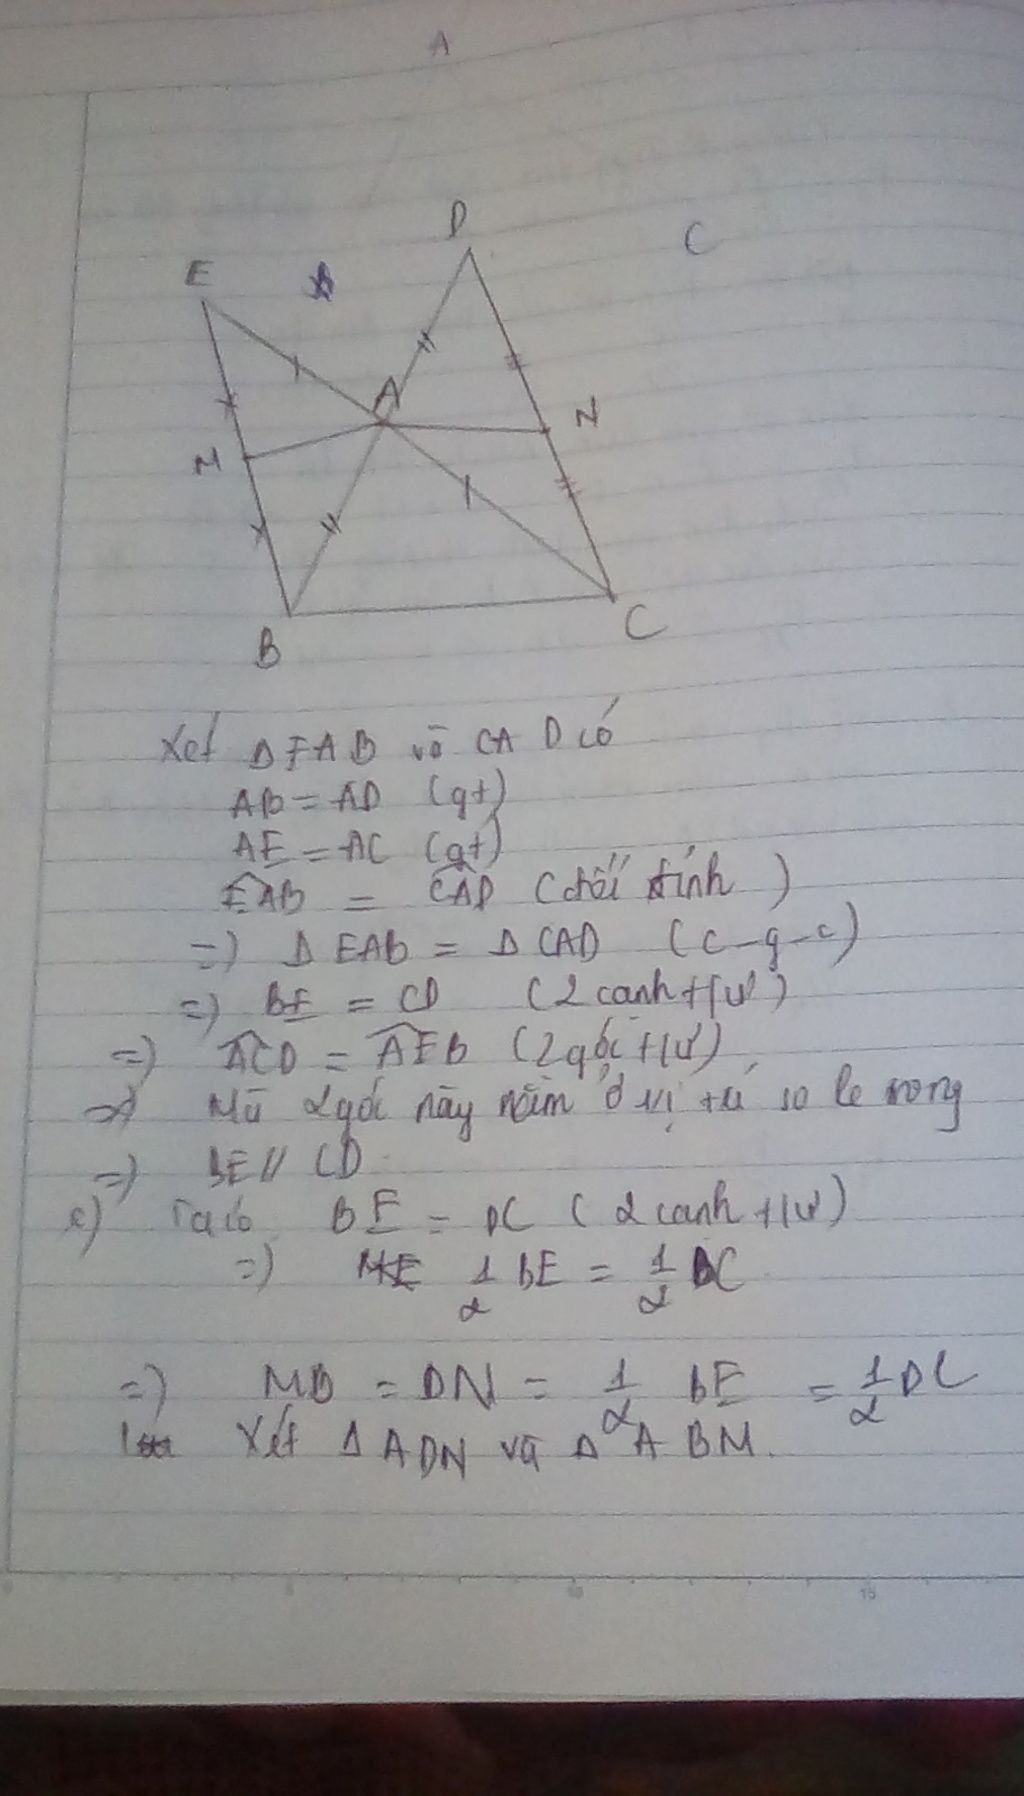 A
D
C
E
A
N
M
B
C
Xét Δ EAB và CAD có
AB = AD (gt)
AE = AC (gt)
EAB = CAD (đối đỉnh)
=) Δ EAB = Δ CAD (c-g-c)
=) BE = CD (2 canh tư)
=) ACD = AEB (2 góc tư)
Mà 2 góc này nằm ở vị trí so le rong
=) BE // CD
c) Ta có BE = DC (2 canh tư)
=) 1/2 BE = 1/2 DC
=) MB = DN = 1/2 BE = 1/2 DC
Xét Δ ADN và Δ ABM.